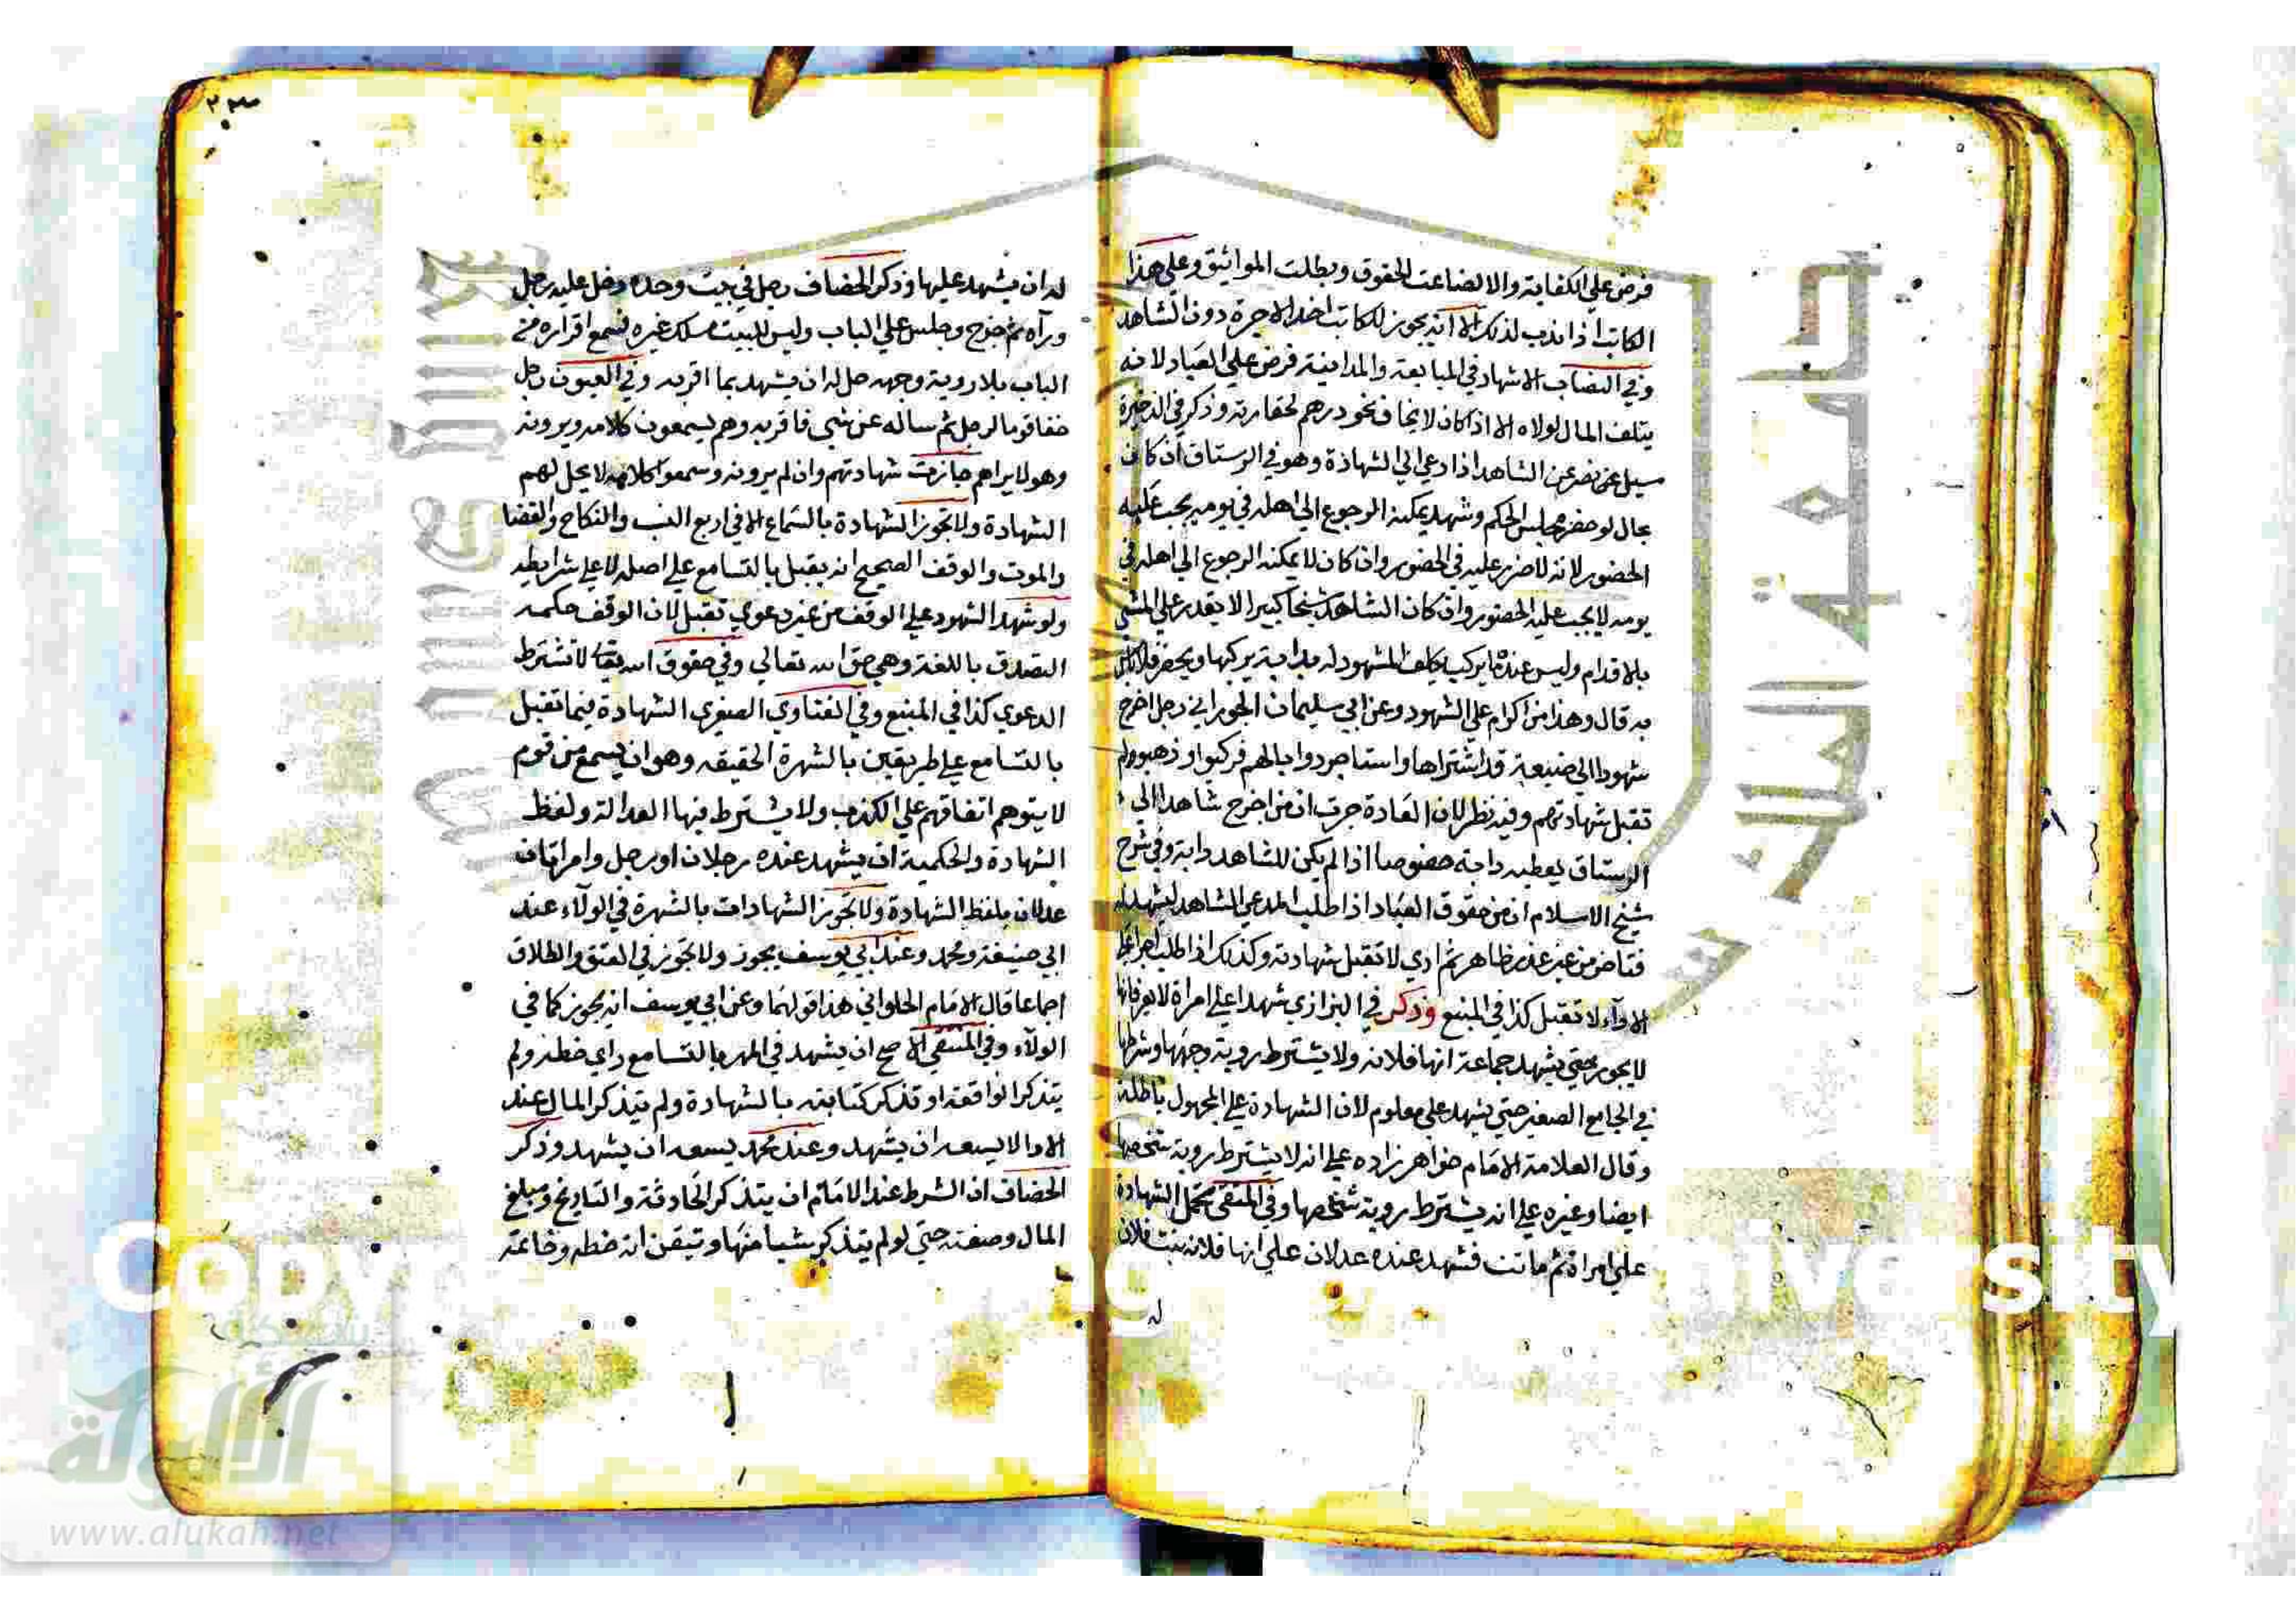 فرض على الكفاية والا لضاعت الحقوق وبطلت المواثيق وعلى هذا
الكاتب اذا ندب لذلك الا انه يجوز للكاتب اخذ الاجرة دون الشاهد
وفي النصاب الاشهاد في المبايعة والمداينة فرض على العباد لانه
يتلف المال لولاه الا اذا كان لا يخاف نحو درهم لحقارته وذكر في الذخيرة
سيل عن نصر عن الشاهد اذا دعي الى الشهادة وهو في الرستاق ان كان
بحال لو حضر مجلس الحكم وشهد يمكنه الرجوع الى اهله في يومه يجب عليه
الحضور لانه لا ضرر عليه في الحضور وان كان لا يمكنه الرجوع الى اهله في
يومه لا يجب عليه الحضور وان كان الشاهد شيخا كبيرا لا يقدر على المشي
بالاقدام وليس عنده ما يركب يكلف المشهود له بدابة يركبها ويحضر فلا باس
به قال وهذا من اكرام على الشهود وعن ابي سليمان الجوزاني رجل اخرج
شهودا الى ضيعة قد اشتراها واستاجر دوابا لهم فركبوا وذهبوا لم
تقبل شهادتهم وفيه نظر لان العادة جرت ان من اخرج شاهدا الى
الرستاق يعطيه دابة خصوصا اذا لم يكن للشاهد دابة وفي شرح
شيخ الاسلام ان من حقوق العباد اذا طلب المدعي الشاهد ليشهد له
فتاخر من غير عذر ظاهر ثم ادي لا تقبل شهادته وكذلك اذا طلب اجر على
الادآء لا تقبل كذا في المنبع وذكر في البزازي شهدا على امراة لا يعرفانها
لا يجوز حتى يشهد جماعة انها فلانه ولا يشترط روية وجهها وشرطها
في الجامع الصغير حتى يشهد على معلوم لان الشهادة على المجهول باطلة
وقال العلامة الامام خواهر زاده على انه لا يشترط روية شخصها
ايضا وغيره على انه يشترط روية شخصها وفي المنتقى تحمل الشهادة
على امراة ثم ماتت فشهد عنده عدلان على انها فلانه بنت فلان
له
٢٣
له ان يشهد عليها وذكر الخصاف رجل في بيت وحده دخل عليه رجل
ورآه ثم خرج وجلس على الباب وليس للبيت مسلك غيره فسمع اقراره من
الباب بلا روية وجهه حل له ان يشهد بما اقر به وفي العيون رجل
خفا قوما لرجل ثم ساله عن شي فاقر به وهم يسمعون كلامه ويرونه
وهو لا يراهم جازت شهادتهم وان لم يرونه وسمعوا كلامه لا يحل لهم
الشهادة ولا تجوز الشهادة بالسماع الا في اربع النسب والنكاح والقضا
والموت والوقف الصحيح انه يقبل بالتسامع على اصله لا على شرايطه
ولو شهد الشهود على الوقف من غير دعوي تقبل لان الوقف حكمه
التصدق باللغة وهي حق الله تعالى وفي حقوق الله تعالى لا تشترط
الدعوي كذا في المنبع وفي الفتاوي الصغرى الشهادة فيما تقبل
بالتسامع على طريقين بالشهرة الحقيقه وهو ان يسمع من قوم
لا يتوهم اتفاقهم على الكذب ولا يشترط فيها العدالة ولفظ
الشهادة والحكمية ان يشهد عنده رجلان او رجل وامراتان
عدلان بلفظ الشهادة ولا تجوز الشهادات بالشهرة في الولآء عند
ابي حنيفة ومحمد وعند ابي يوسف يجوز ولا تجوز في العتق والطلاق
اجماعا قال الامام الحلواني هذا قولهما وعن ابي يوسف انه يجوز كما في
الولآء وفي المنتقى الاصح ان يشهد في المهر بالتسامع راي خطه ولم
يتذكر الواقعة او تذكر كتابته بالشهادة ولم يتذكر المال عند
الادا لا يسعه ان يشهد وعند محمد يسعه ان يشهد وذكر
الخصاف ان الشرط عند الامام ان يتذكر الحادثة والتاريخ ومبلغ
المال وصفته حتى لو لم يتذكر شيا منها وتيقن انه خطه وخاتمه
جامعة الملك سعود
Copy
iversity
الألوكة
www.alukah.net